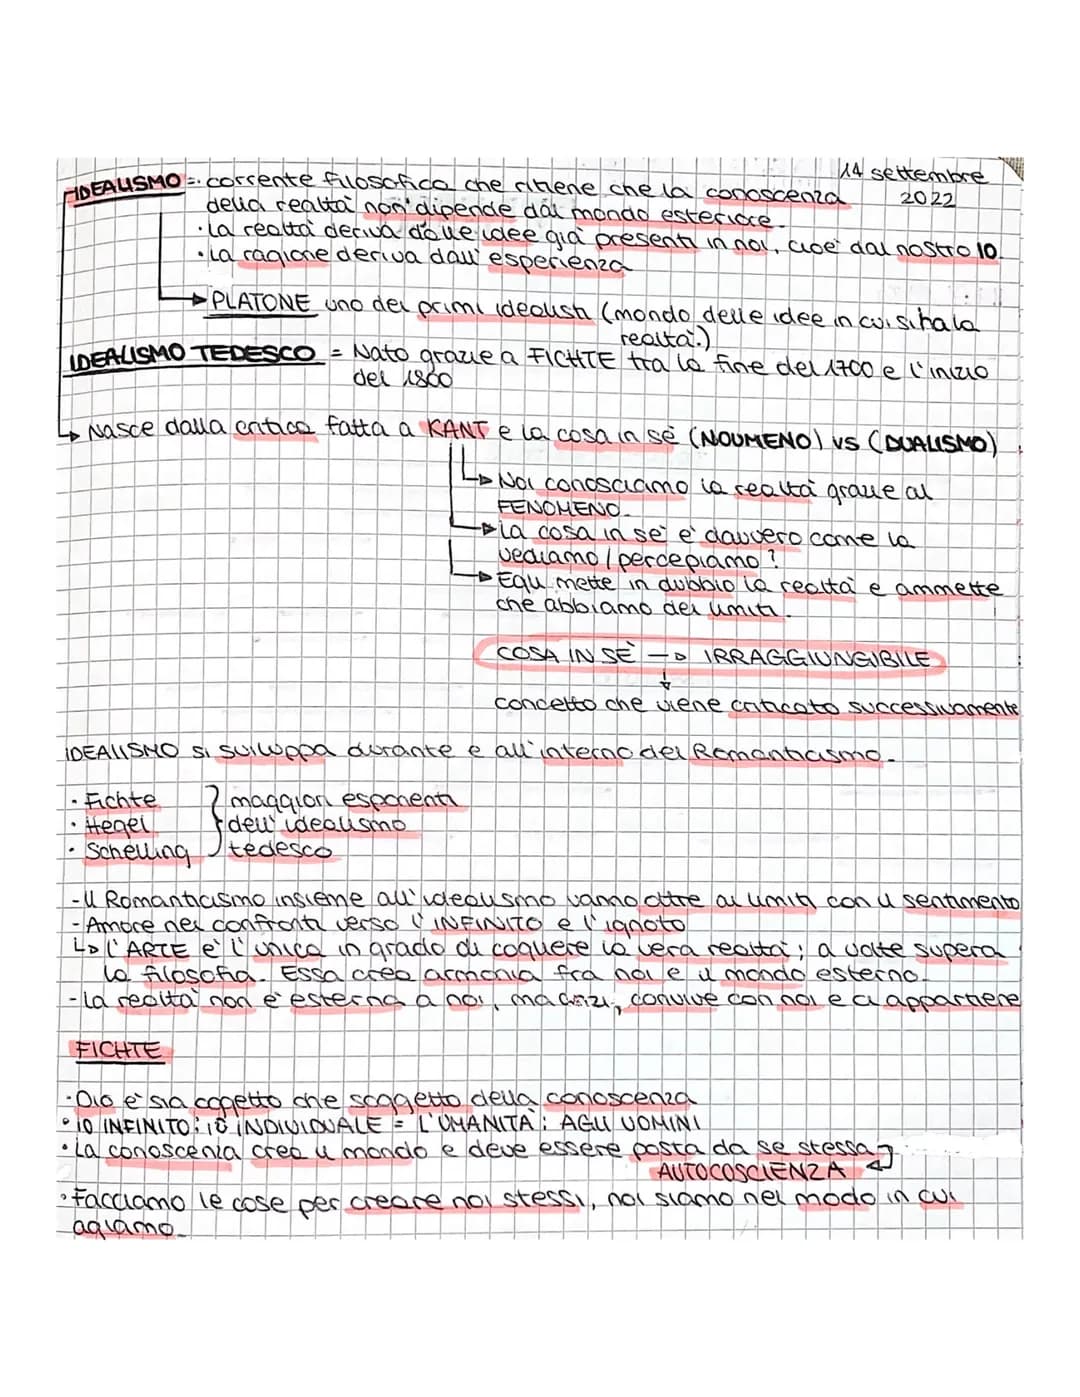 14 settembre
2022
IDEALISMO = corrente filosofica che ritiene che la conoscenza
della realtà non dipende dal mondo esteriore.
· La realtà deriva dalle idee già presenti in noi, cioè dal nostro IO.
· La ragione deriva dall'esperienza
PLATONE uno dei primi idealisti (mondo delle idee in cui si ha la
realtà.)
IDEALISMO TEDESCO = Nato grazie a FICHTE tra la fine del 1700 e l'inizio
del 1800
Nasce dalla critica fatta a KANT e la cosa in sé (NOUMENO) vs (DUALISMO)
Noi conosciamo la realtà grazie al
FENOMENO.
La cosa in sé è davvero come la
vediamo / percepiamo?
Egli mette in dubbio la realtà e ammette
che abbiamo dei limiti.
COSA IN SÉ → IRRAGGIUNGIBILE
concetto che viene criticato successivamente
IDEALISMO si sviluppa durante e all'interno del Romanticismo.
· Fichte
· Hegel
· Schelling
maggiori esponenti
dell'idealismo
tedesco
- Il Romanticismo insieme all'idealismo vanno oltre ai limiti con il sentimento
- Amore nei confronti verso l'INFINITO e l'ignoto
↳ L'ARTE è l'unica in grado di cogliere la vera realtà; a volte supera
la filosofia. Essa crea armonia fra noi e il mondo esterno.
- La realtà non è esterna a noi, ma anzi, convive con noi e ci appartiene
FICHTE
· Dio è sia oggetto che soggetto della conoscenza
· IO INFINITO : IO INDIVIDUALE = L'UMANITÀ : AGLI UOMINI
· La conoscenza crea il mondo e deve essere posta da se stessa
AUTOCOSCIENZA
· Facciamo le cose per creare noi stessi, noi siamo nel modo in cui
agiamo.